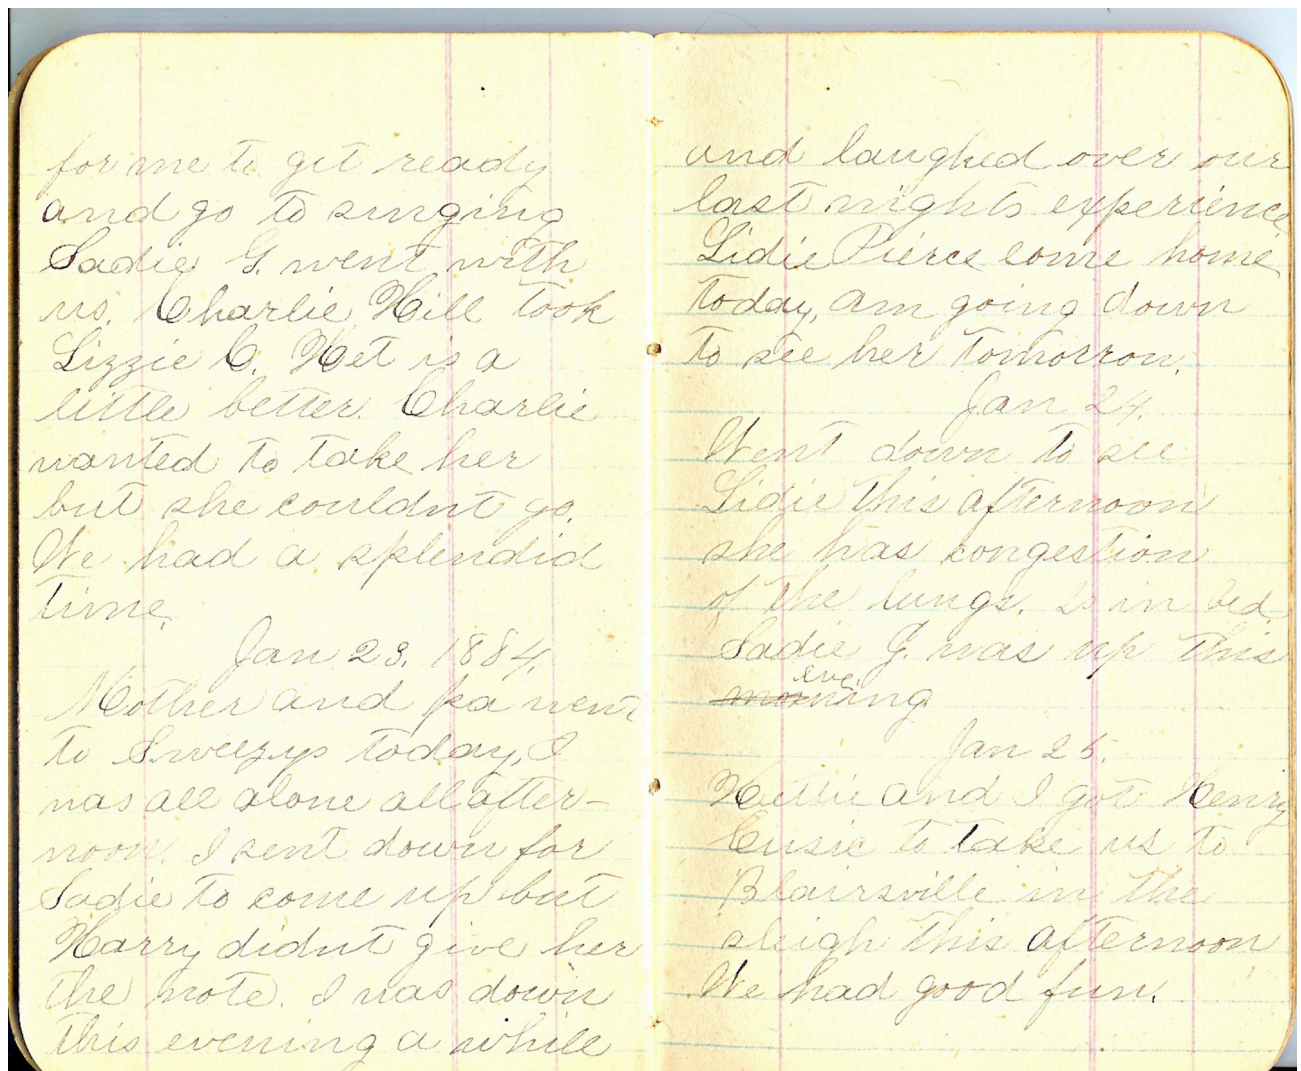 for me to get ready
and go to singing
Sadie G. went with
us. Charlie Hill took
Lizzie C. Het is a
little better. Charlie
wanted to take her
but she couldnt go.
We had a splendid
time.
Jan. 23. 1884.
Mother and pa went
to Sweezys today, I
was all alone all after-
noon. I sent down for
Sadie to come up but
Harry didnt give her
the note. I was down
this evening a while
and laughed over our
last nights experience
Lidie Pierce come home
today, am going down
to see her tomorrow.
Jan 24.
Went down to see
Lidie this afternoon
she has congestion
of the lungs. Is in bed
Sadie G. was up this
eve
morning
Jan 25.
Hettie and I got Henry
Cusic to take us to
Blairsville in the
sleigh this afternoon
We had good fun.